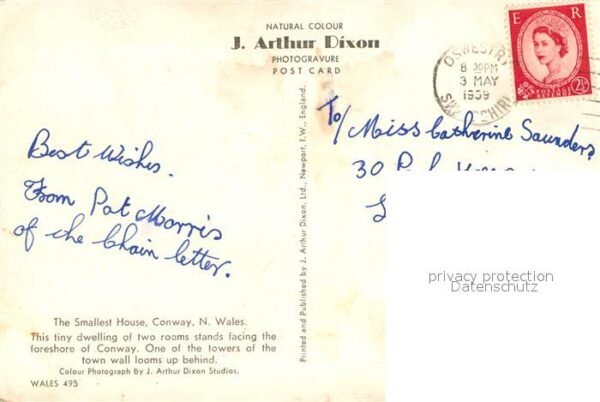 NATURAL COLOUR
J. Arthur Dixon
PHOTOGRAVURE
POST CARD
E R
POSTAGE REVENUE
2½
OSWESTRY
8 30PM
3 MAY
1959
SHROPSHIRE
To/ Miss Catherine Saunders
30
Best Wishes.
From Pat Morris
of the Chain letter.
Printed and Published by J. Arthur Dixon, Ltd., Newport, I.W., England.
privacy protection
Datenschutz
The Smallest House, Conway, N. Wales.
This tiny dwelling of two rooms stands facing the
foreshore of Conway. One of the towers of the
town wall looms up behind.
Colour Photograph by J. Arthur Dixon Studios.
WALES 495